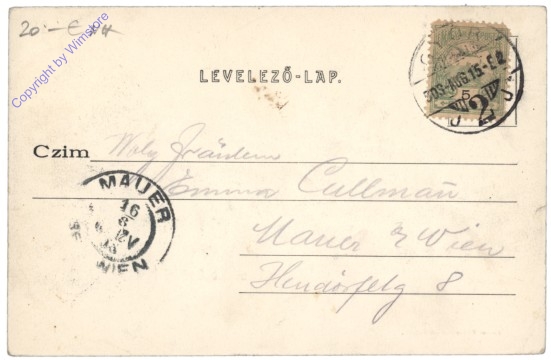 20.- €
Copyright by Wimstore
LEVELEZŐ-LAP.
5
903 AUG. 15
2
Czim Fräulein
Emma Cullmann
Mauer Wien
8
MAUER
16
8
WIEN